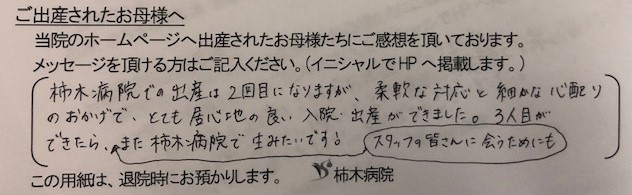 ご出産されたお母様へ
当院のホームページへ出産されたお母様たちにご感想を頂いております。
メッセージを頂ける方はご記入ください。(イニシャルでHPへ掲載します。)
柿木病院での出産は2回目になりますが、柔軟な対応と細かな心配り
のおかげで、とても居心地の良い入院・出産ができました。3人目が
できたら、また柿木病院で生みたいです! スタッフの皆さんに会うためにも
この用紙は、退院時にお預かりします。 柿木病院